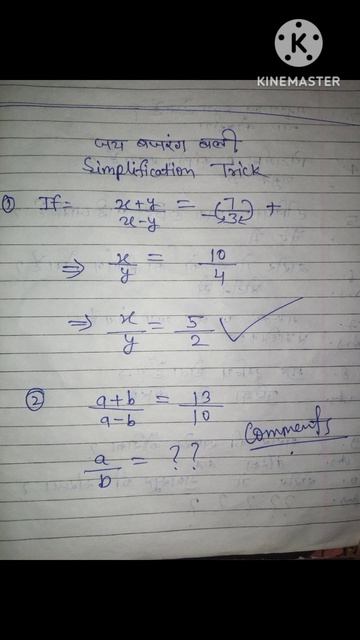 KINEMASTER
जय बजरंग बली
Simplification Trick
① If = x+y/x-y = 7/3 +
⇒ x/y = 10/4
⇒ x/y = 5/2 ✓
② a+b/a-b = 13/10
Comments
a/b = ??